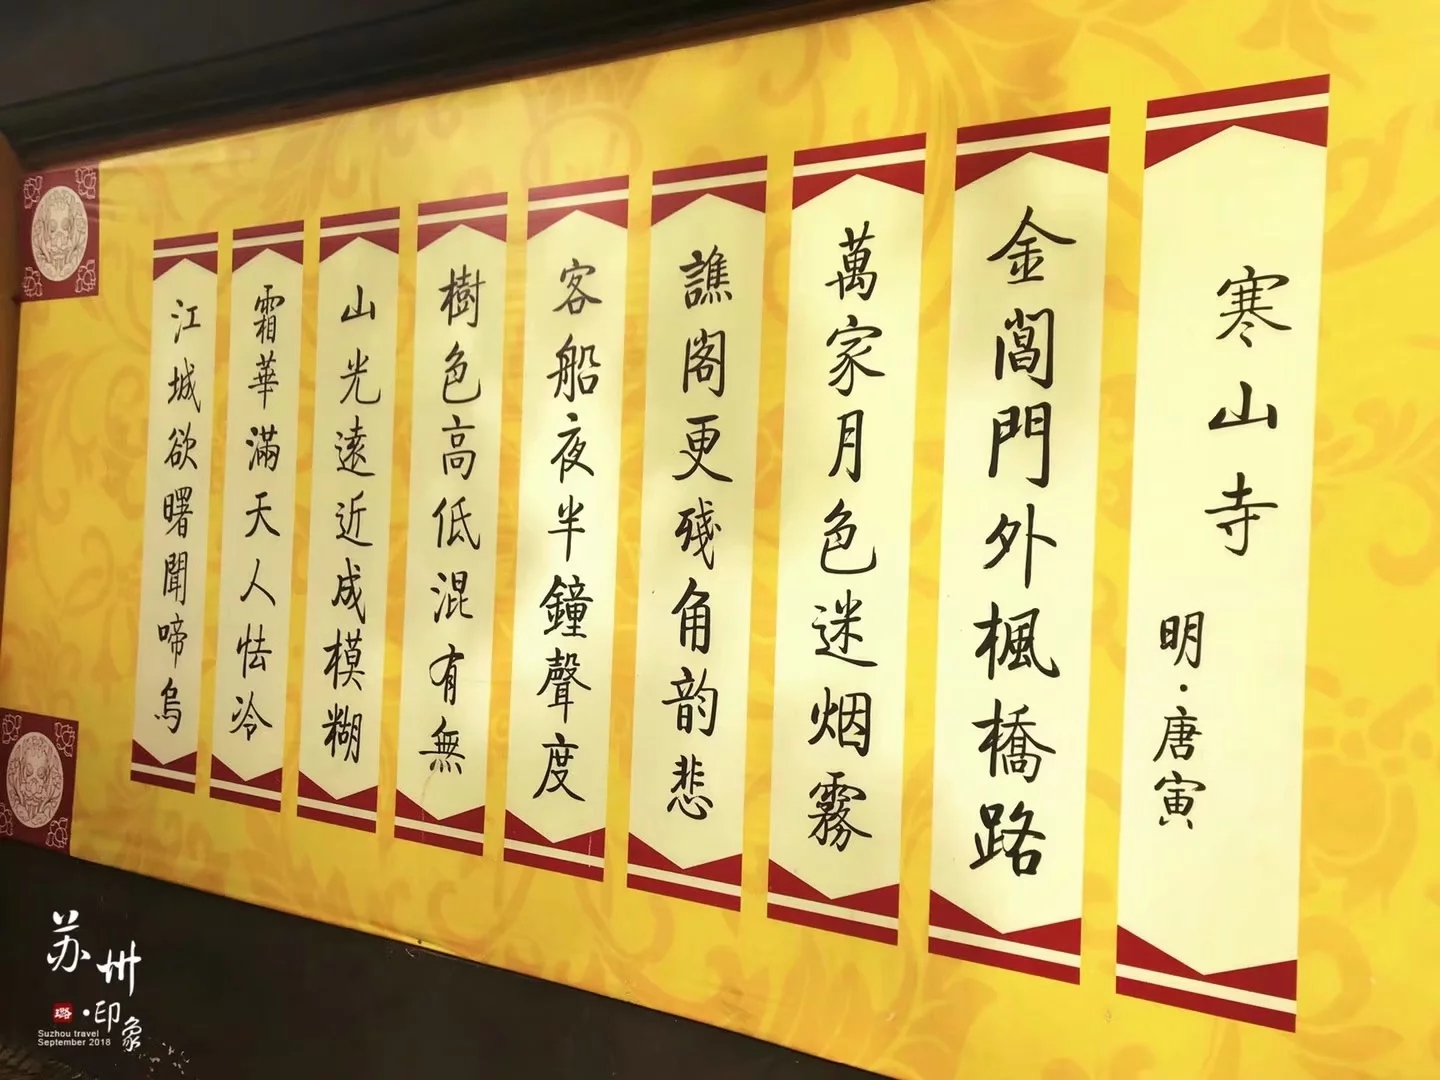 寒山寺
明·唐寅
金閶門外楓橋路
萬家月色迷烟霧
譙閣更殘角韵悲
客船夜半鐘聲度
樹色高低混有無
山光遠近成模糊
霜華滿天人怯冷
江城欲曙聞啼烏
苏州
·印象
Suzhou travel
September 2018